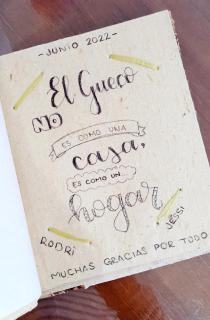 -JUNIO 2022-
El Gueco
NO
ES COMO UNA
casa,
ES COMO UN
hogar
RODRI
JESSI
MUCHAS GRACIAS POR TODO